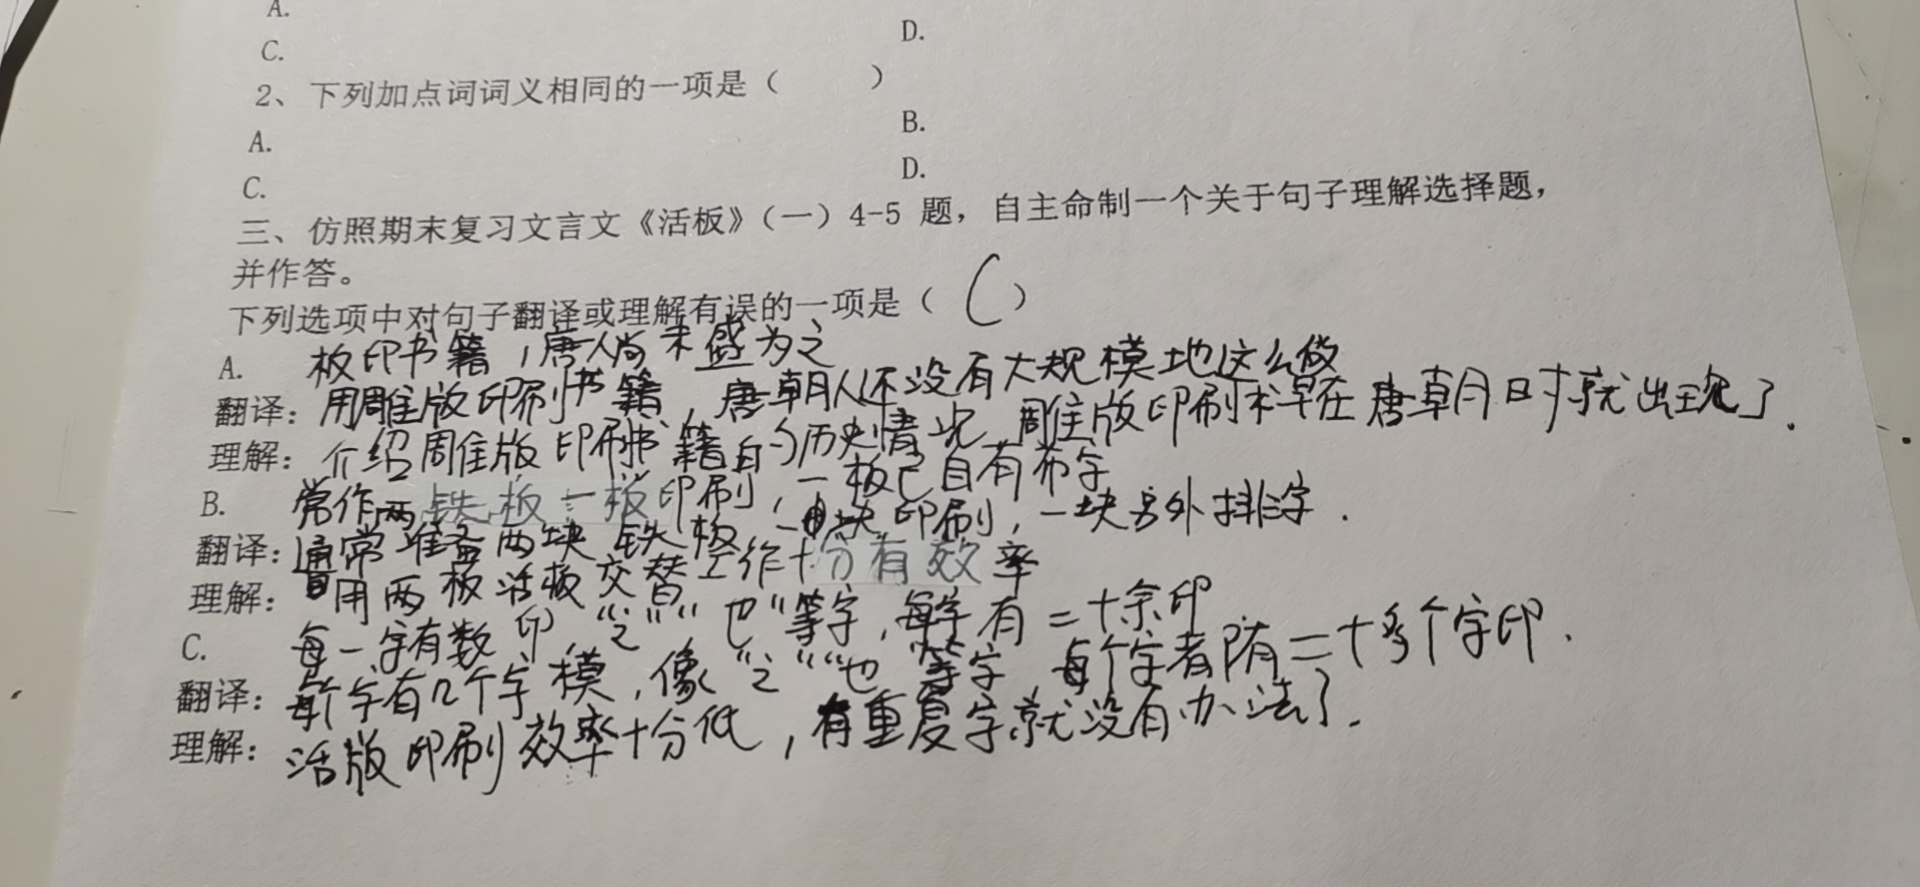 A.
C.
D.
2、下列加点词词义相同的一项是（ ）
A.
B.
C.
D.
三、仿照期末复习文言文《活板》（一）4-5 题，自主命制一个关于句子理解选择题，
并作答。
下列选项中对句子翻译或理解有误的一项是（ C ）
A. 板印书籍，唐人尚未盛为之
翻译：用雕版印刷书籍，唐朝人还没有大规模地这么做
理解：介绍雕版印刷书籍的历史情况 雕版印刷术早在唐朝时就出现了.
B. 常作两铁板一板印刷，一板已自有布字
翻译：通常准备两块铁板，一块印刷，一块另外排字.
理解：用两板活板交替工作十分有效率
C. 每一字有数印，“之”“也”等字，每字有二十余印
翻译：每个字有几个字模，像“之”“也”等字，每个字都有二十多个字印.
理解：活版印刷效率十分低，有重复字就没有办法了.